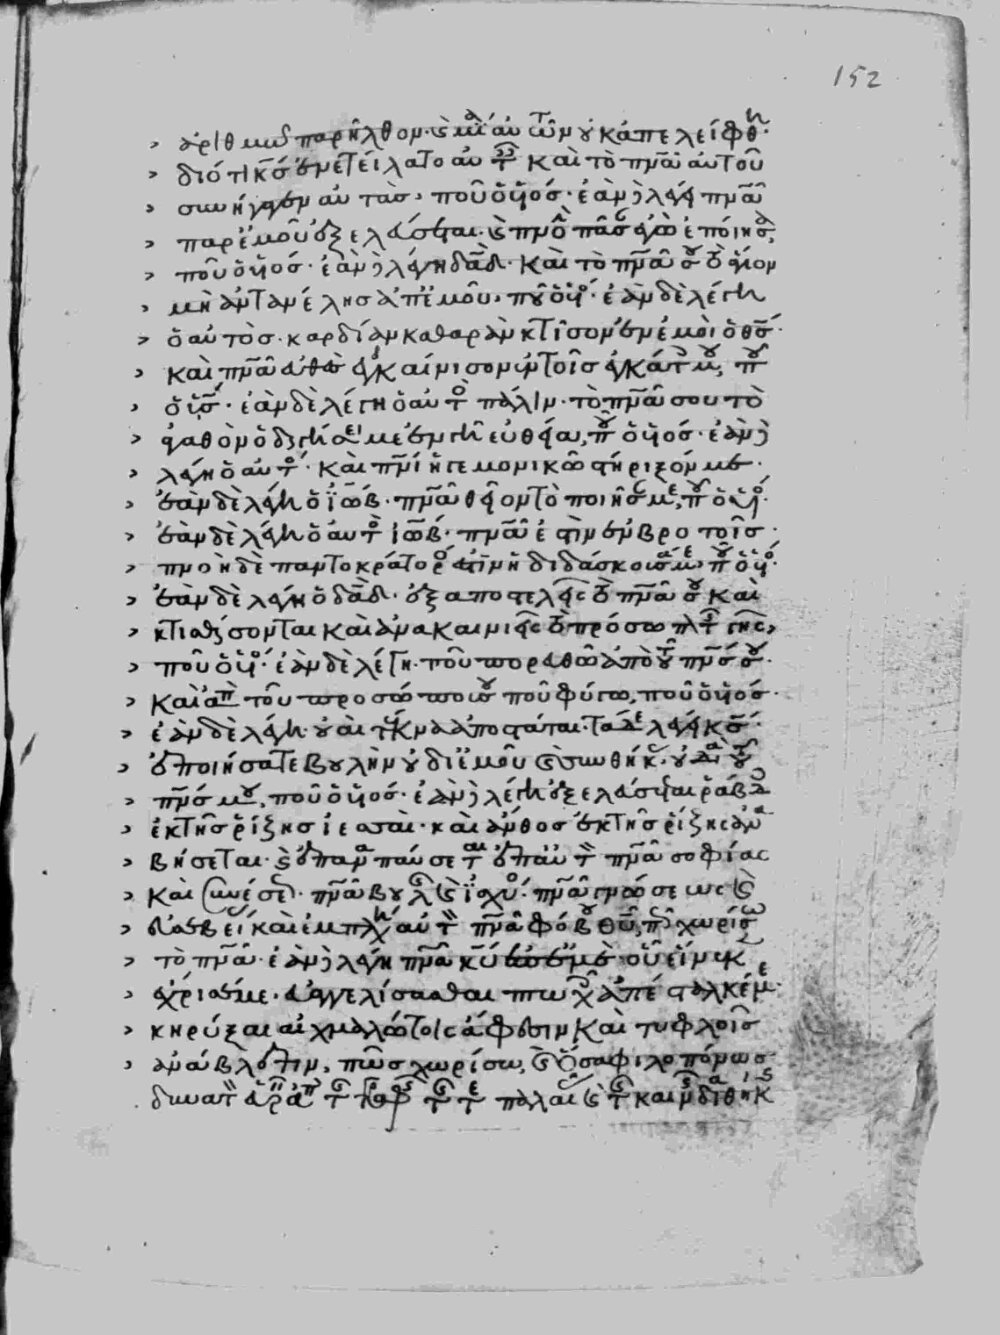 152
ἀριθμῷ παρῆλθον· καὶ μία αὐτῶν οὐκ ἀπελείφθη·
διότι κς ἐνετείλατο αὐτοῖς καὶ τὸ πνα αὐτοῦ
συνήγαγεν αὐτάς· ποῦ ὁ υἱός· ἐὰν λέγῃ πνα
παρ' ἐμοῦ ἐξελεύσεται· καὶ πνοὴν πᾶσαν ἐγὼ ἐποίησα,
ποῦ ὁ υἱός· ἐὰν λέγῃ δαδ· καὶ τὸ πνα σου τὸ ἅγιον
μὴ ἀντανέλῃς ἀπ' ἐμοῦ· ποῦ ὁ υἱός· ἐὰν δὲ λέγῃ
ὁ αὐτός· καρδίαν καθαρὰν κτίσον ἐν ἐμοὶ ὁ θς·
καὶ πνα εὐθὲς ἐγκαίνισον ἐν τοῖς ἐγκάτοις μου, ποῦ
ὁ υἱς· ἐὰν δὲ λέγῃ ὁ αὐτὸς πάλιν· τὸ πνα σου τὸ
ἀγαθὸν ὁδηγήσει με ἐν γῇ εὐθείᾳ, ποῦ ὁ υἱός· ἐὰν
λέγῃ ὁ αὐτός· καὶ πνι ἡγεμονικῷ στήριξόν με·
ἐὰν δὲ λέγῃ ὁ ἰώβ· πνα θεῖον τὸ ποιῆσάν με, ποῦ ὁ υἱός·
ἐὰν δὲ λέγῃ ὁ αὐτὸς ἰώβ· πνα ἐστὶν ἐν βροτοῖς·
πνοὴ δὲ παντοκράτορός ἐστιν ἡ διδάσκουσά με, ποῦ ὁ υἱός·
ἐὰν δὲ λέγῃ ὁ δαδ· ἐξαποστελεῖς τὸ πνα σου καὶ
κτισθήσονται καὶ ἀνακαινιεῖς τὸ πρόσωπον τῆς γῆς,
ποῦ ὁ υἱός· ἐὰν δὲ λέγῃ· ποῦ πορευθῶ ἀπὸ τοῦ πνς σου·
καὶ ἀπὸ τοῦ προσώπου σου ποῦ φύγω, ποῦ ὁ υἱός·
ἐὰν δὲ λέγῃ· οὐαὶ τέκνα ἀποστάται· τάδε λέγει κς·
ἐποιήσατε βουλὴν οὐ δι' ἐμοῦ καὶ συνθήκας οὐ διὰ τοῦ
πνς μου, ποῦ ὁ υἱός· ἐὰν λέγῃ ἐξελεύσεται ῥάβδος
ἐκ τῆς ῥίζης ἰεσσαί· καὶ ἄνθος ἐκ τῆς ῥίζης ἀνα
βήσεται· καὶ ἐπαναπαύσεται ἐπ' αὐτὸν πνα σοφίας
καὶ συνέσεως· πνα βουλῆς καὶ ἰσχύος· πνα γνώσεως καὶ
εὐσεβείας καὶ ἐμπλήσει αὐτὸν πνα φόβου θυ, πῶς χωρίσω
τὸ πνα· ἐὰν λέγῃ πνα κυ ἐπ' ἐμέ· οὗ εἵνεκεν
ἔχρισέ με· εὐαγγελίσασθαι πτωχοῖς ἀπέσταλκέν με·
κηρύξαι αἰχμαλώτοις ἄφεσιν καὶ τυφλοῖς
ἀνάβλεψιν, πῶς χωρίσω,